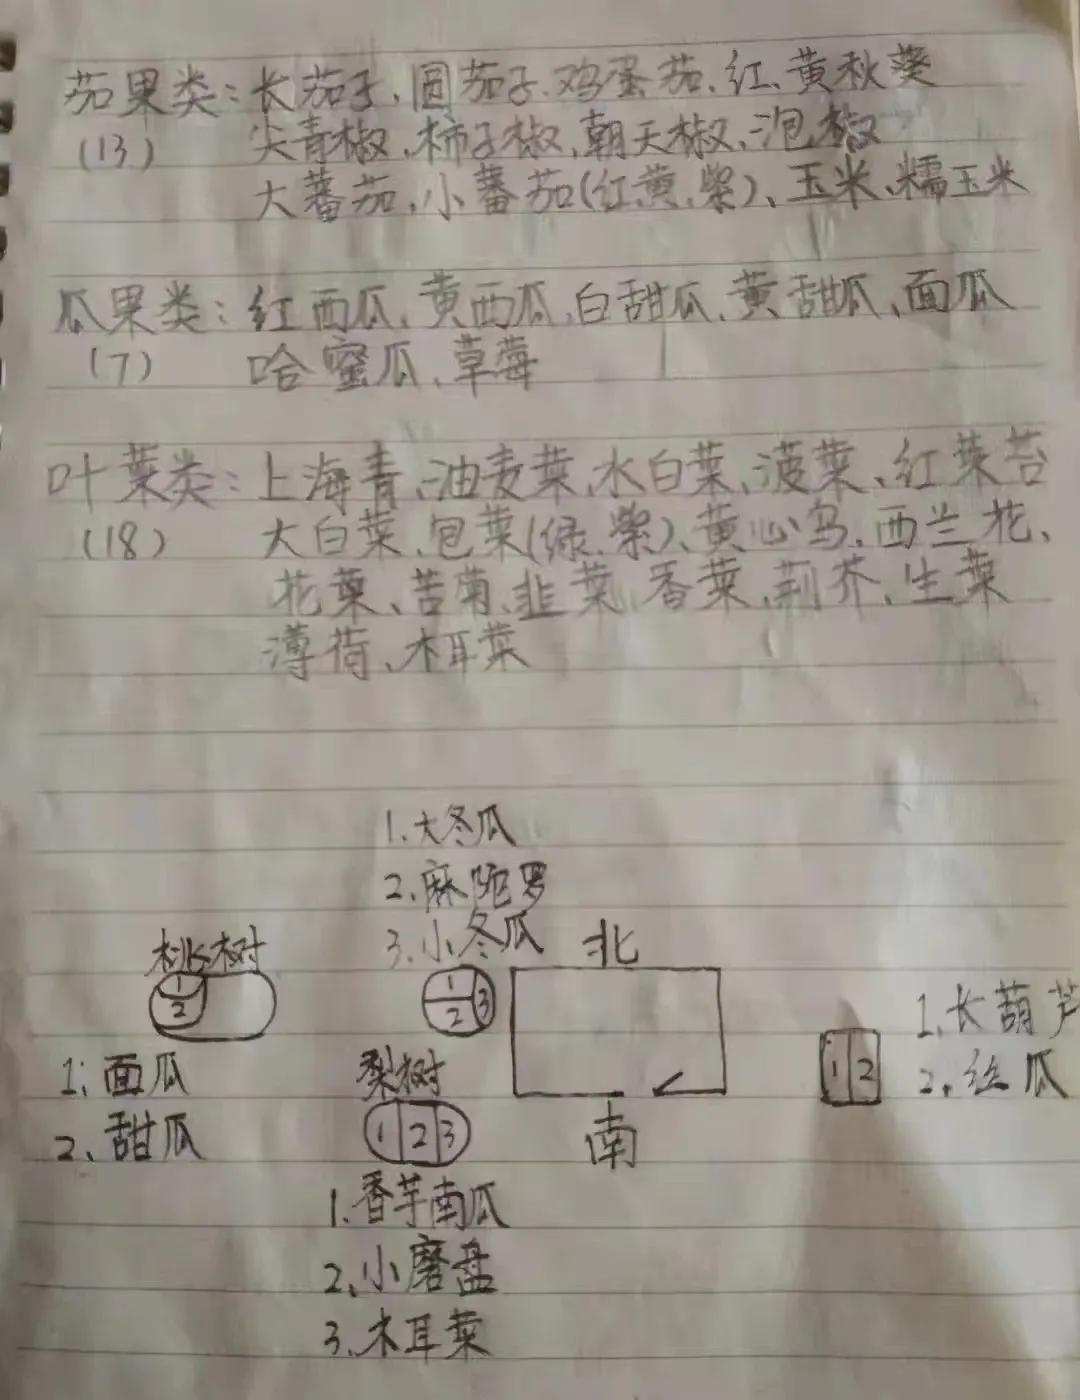 茄果类：长茄子、圆茄子、鸡蛋茄、红、黄秋葵
(13) 尖青椒、柿子椒、朝天椒、泡椒
大蕃茄、小蕃茄(红、黄、紫)、玉米、糯玉米
瓜果类：红西瓜、黄西瓜、白甜瓜、黄甜瓜、面瓜
(7) 哈蜜瓜、草莓
叶菜类：上海青、油麦菜、水白菜、菠菜、红菜苔
(18) 大白菜、包菜(绿、紫)、黄心乌、西兰花、
花菜、苦菊、韭菜、香菜、荆芥、生菜
薄荷、木耳菜
1、大冬瓜
2、麻陀罗
3、小冬瓜
桃树
北
1
2
1
2
3
1
2
1、长葫芦
2、丝瓜
1、面瓜
2、甜瓜
梨树
1 2 3
南
1、香芋南瓜
2、小磨盘
3、木耳菜